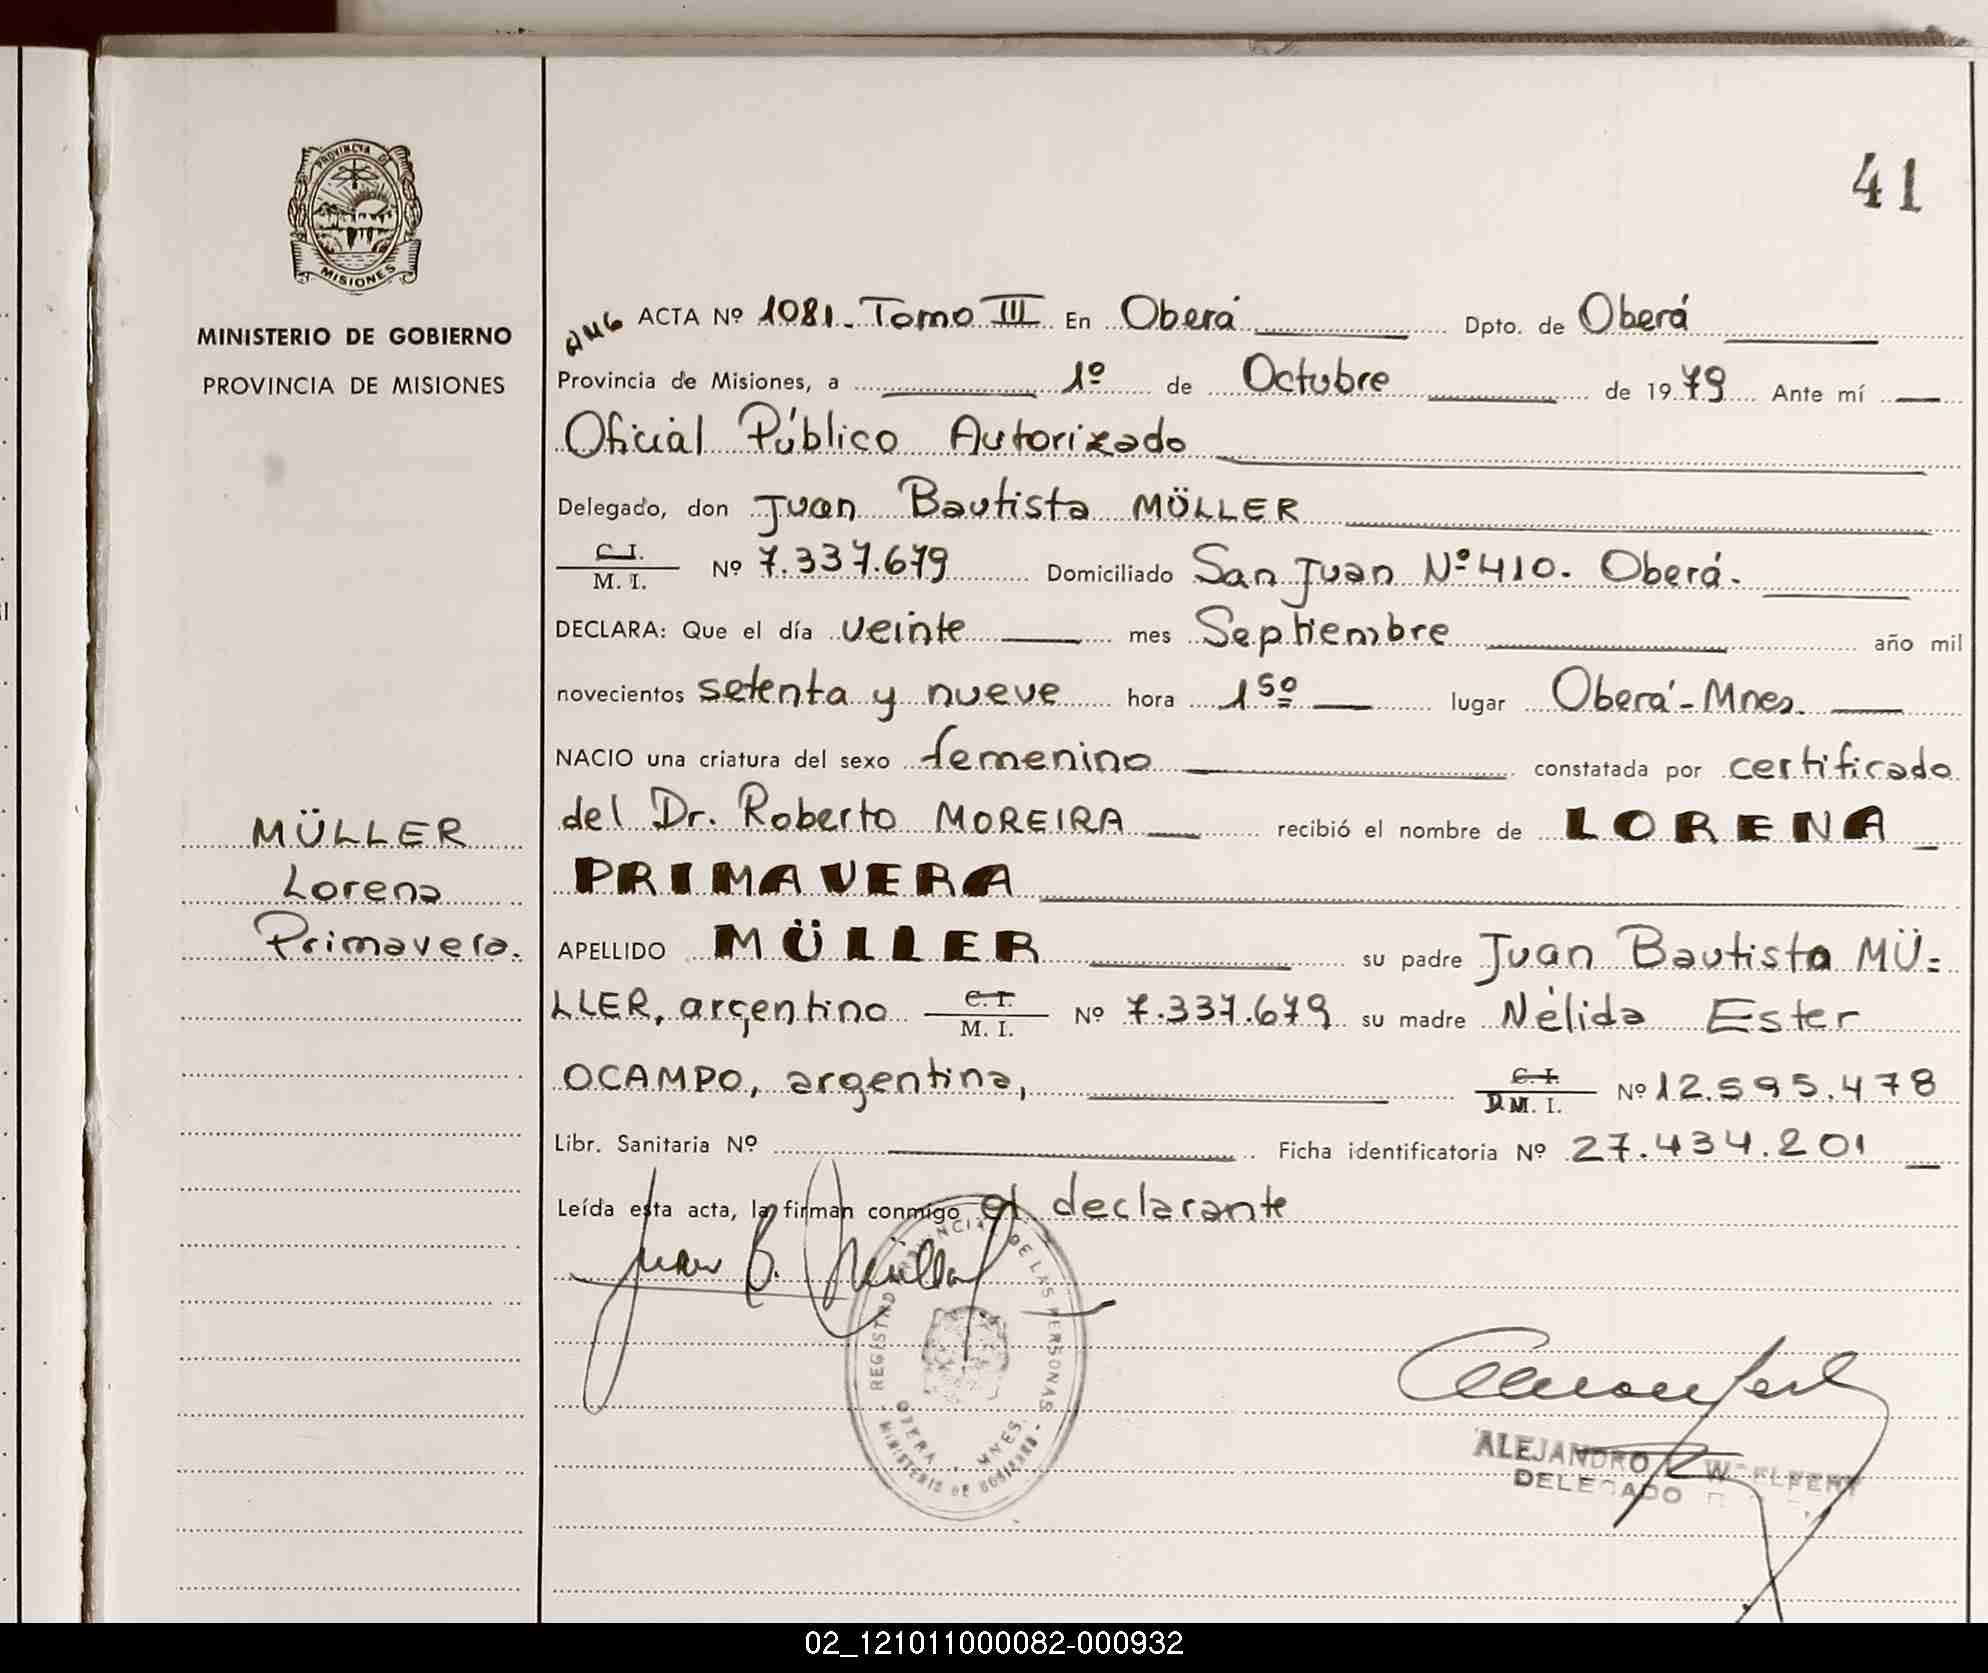 41
PROVINCIA DE
MISIONES
MINISTERIO DE GOBIERNO
PROVINCIA DE MISIONES
MÜLLER
Lorena
Primavera.
ACTA Nº 1081. Tomo III En Oberá Dpto. de Oberá
Provincia de Misiones, a 1º de Octubre de 1979 Ante mí
Oficial Público Autorizado
Delegado, don Juan Bautista MÜLLER
C. I.
M. I. Nº 7.337.679 Domiciliado San Juan Nº 410. Oberá.
DECLARA: Que el día veinte mes Septiembre año mil
novecientos setenta y nueve hora 1⁵⁰ lugar Oberá-Mnes.
NACIO una criatura del sexo femenino constatada por certificado
del Dr. Roberto MOREIRA recibió el nombre de LORENA
PRIMAVERA
APELLIDO MÜLLER su padre Juan Bautista MÜ=
LLER, argentino C. I. M. I. Nº 7.337.679 su madre Nélida Ester
OCAMPO, argentina, C. I. D M. I. Nº 12.595.478
Libr. Sanitaria Nº Ficha identificatoria Nº 27.434.201
Leída esta acta, la firman conmigo el declarante
Juan B. Müller
REGISTRO PROVINCIAL DE LAS PERSONAS
OBERA - MNES.
MINISTERIO DE GOBIERNO
ALEJANDRO
DELEGADO
02_121011000082-000932